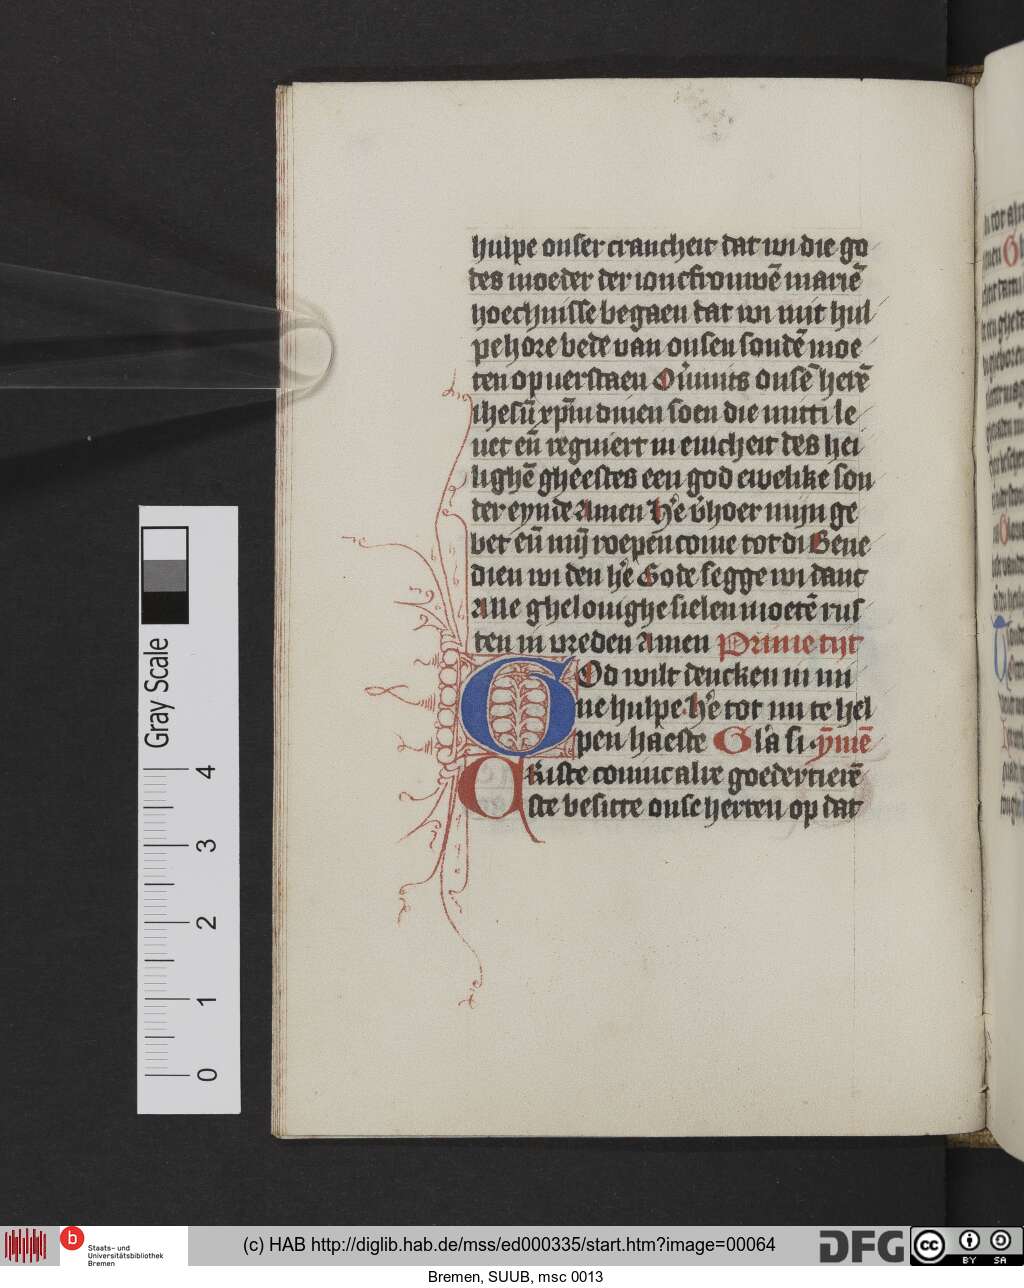 hulpe onser crancheit dat wi die go
des moeder der ioncfrouwē mariē
hoechnisse begaen dat wi mit hul
pe hōre bede van onsen sondē moe
ten op uerstaen Ou̇mits onsē herē
ihesū xp̄m dinen soen die mit ti le
uet eñ regniert in enicheit des hei
lighē gheestes een god ewelike son
der eynde Amen he v̇hoer mijn ge
bet eñ mij roepen come tot di Bene
dien wi den he Gode segge wi danc
Alle ghelouighe sielen moetē rus
ten in vreden Amen Prime tijt
God wilt dencken in mi
ne hulpe he tot mi te hel
pen haeste Gla si ymē
Criste comnicalre goedertierē
ste besitte onse herten op dat
Gray Scale
4
3
2
1
0
b
Staats- und
Universitätsbibliothek
Bremen
(c) HAB http://diglib.hab.de/mss/ed000335/start.htm?image=00064
DFG
cc
BY SA
Bremen, SUUB, msc 0013